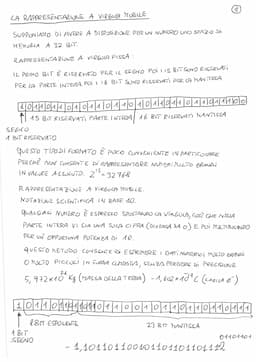 1
LA RAPPRESENTAZIONE A VIRGOLA MOBILE
SUPPONIAMO DI AVERE A DISPOSIZIONE PER UN NUMERO UNO SPAZIO DI
MEMORIA A 32 BIT.
RAPPRESENTAZIONE A VIRGOLA FISSA
IL PRIMO BIT È RISERVATO PER IL SEGNO POI I 15 BIT SONO RISERVATI
PER LA PARTE INTERA POI I 16 BIT SONO RISERVATI PER LA MANTISSA
15 BIT RISERVATI PARTE INTERA 16 BIT RISERVATI MANTISSA
SEGNO
1 BIT RISERVATO
QUESTO TIPO DI FORMATO È POCO CONVENIENTE IN PARTICOLARE
PERCHÉ NON CONSENTE DI RAPPRESENTARE NUMERI MOLTO GRANDI
IN VALORE ASSOLUTO. 2^15 = 32768
RAPPRESENTAZIONE A VIRGOLA MOBILE.
NOTAZIONE SCIENTIFICA IN BASE 10.
QUALSIASI NUMERO È ESPRESSO SPOSTANDO LA VIRGOLA, COSÌ CHE NELLA
PARTE INTERA VI SIA UNA SOLA CIFRA (DIVERSA DA 0) E POI MOLTIPLICANDO
PER UN' OPPORTUNA POTENZA DI 10.
QUESTO METODO CONSENTE DI ESPRIMERE I DATI NUMERICI MOLTO GRANDI
O MOLTO PICCOLI IN FORMA CONCISA, SENZA PERDERE DI PRECISIONE.
5,972 × 10^24 Kg (MASSA DELLA TERRA) -1,602 × 10^-19 C (CARICA e-)
1 BIT 8 BIT ESPONENTE 23 BIT MANTISSA
SEGNO 01101101